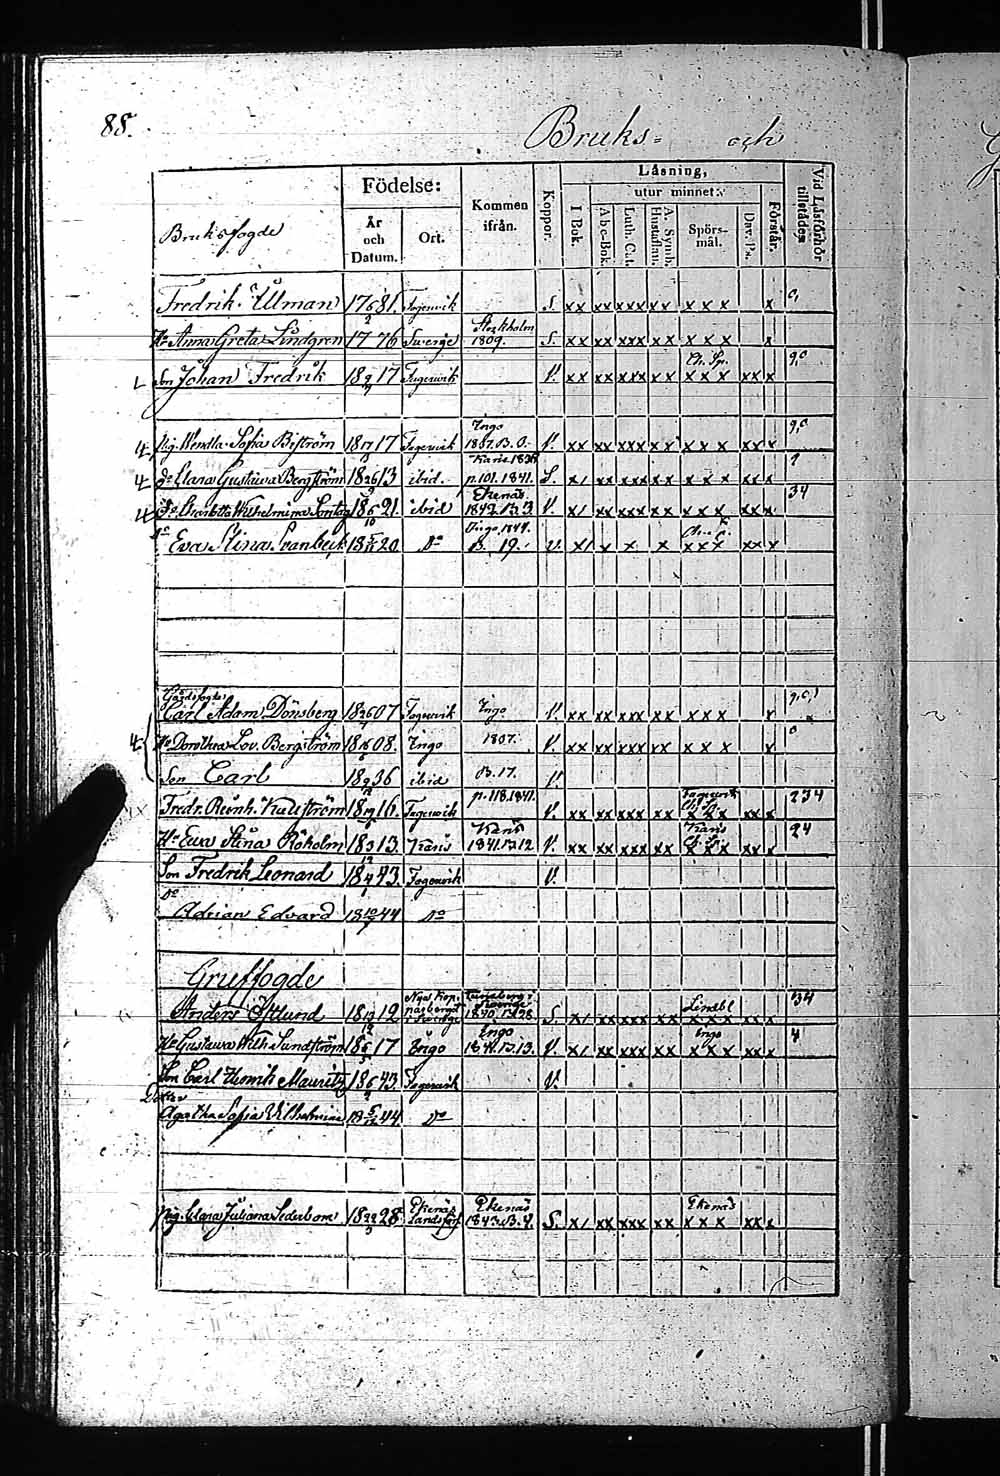 88.
Bruks= och
Bruksfogde
Födelse:
År och Datum.
Ort.
Kommen ifrån.
Koppor.
Läsning,
utur minnet:
I Bok.
Abc-Bok.
Luth. Cat.
A. Symb. Hustafl.
Spörs-mål.
Dav. Ps.
Förstår.
Vid Läsförhör tillstädes
Fredrik Ulman 17 81. Fagervik S. xx xx xxx xx xxx x
Hu Anna Greta Lindgren 17 76 Sverge Stockholm 1809. S. xx xx xxx xx xxx x
Son Johan Fredrik 18 17 Fagervik V. xx xx xxx xx xxx xx x
Pig. Wendla Sofia 18 17 Fagervik Ingo V. xx xx xxx xx xxx xx x
Do Clara Gustawa Bergström 18 26 13 ibid. p.101. 1841. S. x/ xx xxx xx xxx xx x
Do Charlotta Wilhelmina 18 21. ibid Ekenäs V. x/ xx xxx xx xxx xx x 34
Do Eva Stina 18 20 Do Ingo 1844. B. 19. V. x/ x x x xxx xx x
Gårdsfogde
Carl Adam Dönsberg 18 26 07 Fagervik Ingo V. xx xx xxx xx xxx x
Hu Dorothea Lov. Bergström 18 08. Ingo 1807. V. xx xx xxx xx xxx x
Son Carl 18 36 ibid B. 17. V.
Fredr. Reinh. 18 19 16. Fagervik p. 118. 1841. V. xx xx xxx xx Fagervik xxx xx x 234
Hu Ewa Stina Röholm 18 13. Karis Karis 1841. B. 12 V. xx xx xxx xx Karis xxx xx x 24
Son Fredrik Leonard 18 43. Fagervik V.
Do Adrian Edvard 18 10 44 Do
Gruffogde
Anders Östlund 18 13 12 Nya Kopparberget i Sverige Sverige 1840. B. 28. S. x/ xx xxx xx xxx xx x 34
Hu Gustawa Wilh. Sundström 18 17 Ingo Ingo 1841. B. 13. V. x/ xx xxx xx Ingo xxx xx x 4
Son Carl Henrik Mauritz 18 6 43. Fagervik V.
Dotter
Agatha Sofia Wilhelmina 18 5 44 Do
Pig. Clara Juliana Sederbom 18 22 28. Ekenäs Landsförs. Ekenäs 1843. B. S. x/ xx xxx xx Ekenäs xxx xx x